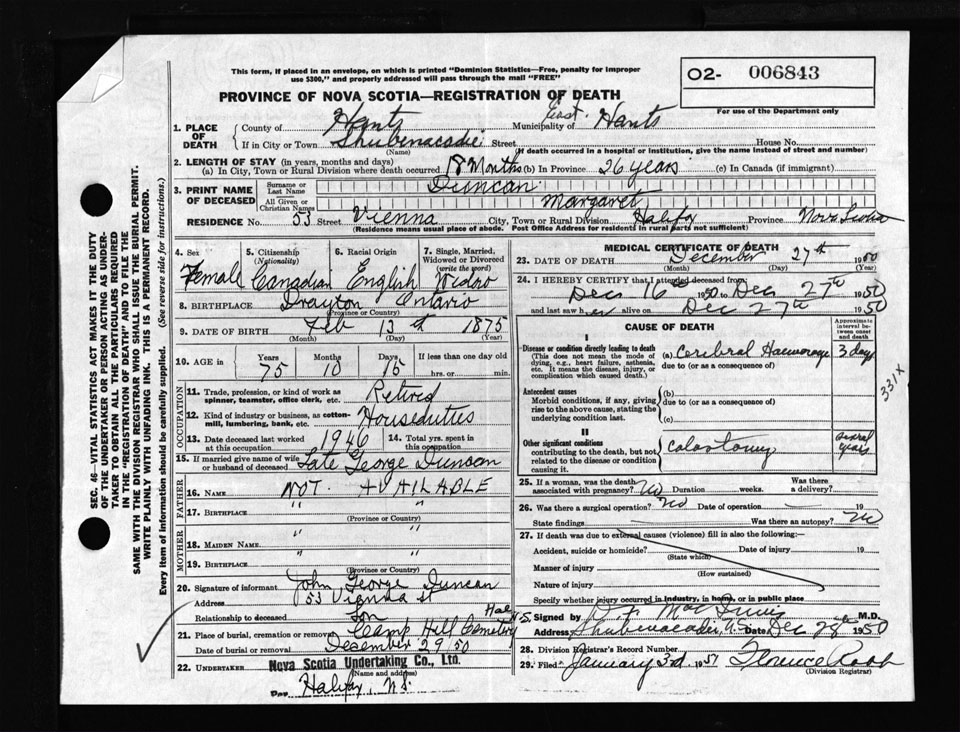 This form, if placed in an envelope, on which is printed "Dominion Statistics—Free, penalty for improper
use $300," and properly addressed will pass through the mail "FREE"
O2- 006843
For use of the Department only
PROVINCE OF NOVA SCOTIA—REGISTRATION OF DEATH
1. PLACE OF DEATH County of Hants Municipality of East Hants
If in City or Town Shubenacadie Street House No.
(Name) (If death occurred in a hospital or institution, give the name instead of street and number)
2. LENGTH OF STAY (in years, months and days)
(a) In City, Town or Rural Division where death occurred 18 Months (b) In Province 26 years (c) In Canada (if immigrant)
3. PRINT NAME OF DECEASED Surname or Last Name Duncan
All Given or Christian Names Margaret
RESIDENCE No. 53 Street Vienna City, Town or Rural Division Halifax Province Nova Scotia
(Residence means usual place of abode. Post Office Address for residents in rural parts not sufficient)
4. Sex Female
5. Citizenship (Nationality) Canadian
6. Racial Origin English
7. Single, Married, Widowed or Divorced (write the word) Widow
8. BIRTHPLACE Drayton Ontario
(Province or Country)
9. DATE OF BIRTH Feb 13th 1875
(Month) (Day) (Year)
10. AGE IN Years 75 Months 10 Days 15 If less than one day old
hrs. or min.
OCCUPATION
11. Trade, profession, or kind of work as spinner, teamster, office clerk, etc. Retired
12. Kind of industry or business, as cotton-mill, lumbering, bank, etc. Houseduties
13. Date deceased last worked at this occupation 1946 14. Total yrs. spent in this occupation
15. If married give name of wife or husband of deceased Late George Duncan
FATHER
16. NAME NOT AVAILABLE
17. BIRTHPLACE " "
(Province or Country)
MOTHER
18. MAIDEN NAME " "
19. BIRTHPLACE " "
(Province or Country)
20. Signature of informant John George Duncan
Address 53 Vienna st
Relationship to deceased Son Hal N-S.
21. Place of burial, cremation or removal Camp Hill Cemetery
Date of burial or removal December 29/50
22. UNDERTAKER Nova Scotia Undertaking Co., Ltd.
(Name and address)
Per Halifax, N.S.
MEDICAL CERTIFICATE OF DEATH
23. DATE OF DEATH December 27th 1950
(Month) (Day) (Year)
24. I HEREBY CERTIFY that I attended deceased from
Dec 16th 1950 to Dec 27th 1950
and last saw her alive on Dec 27th 1950
CAUSE OF DEATH
Approximate interval between onset and death
I
Disease or condition directly leading to death
(This does not mean the mode of dying, e.g., heart failure, asthenia, etc. It means the disease, injury, or complication which caused death.)
(a) Cerebral Haemorrage 3 days
due to (or as a consequence of)
331X
Antecedent causes
Morbid conditions, if any, giving rise to the above cause, stating the underlying condition last.
(b)
due to (or as a consequence of)
(c)
II
Other significant conditions
contributing to the death, but not related to the disease or condition causing it.
Colostomy several years
25. If a woman, was the death associated with pregnancy? No Duration weeks. Was there a delivery?
26. Was there a surgical operation? No Date of operation 19
State findings Was there an autopsy? No
27. If death was due to external causes (violence) fill in also the following:—
Accident, suicide or homicide? Date of injury 19
(State which)
Manner of injury
(How sustained)
Nature of injury
Specify whether injury occurred in industry, in home, or in public place
Signed by M.D.
Address Shubenacadie, N.S. Date Dec 28th 1950
28. Division Registrar's Record Number
29. Filed January 3rd 1951 Florence Robb
(Division Registrar)
SEC. 46—VITAL STATISTICS ACT MAKES IT THE DUTY
OF THE UNDERTAKER OR PERSON ACTING AS UNDER-
TAKER TO OBTAIN ALL THE PARTICULARS REQUIRED
IN THE "REGISTRATION OF DEATH" AND TO FILE THE
SAME WITH THE DIVISION REGISTRAR WHO SHALL ISSUE THE BURIAL PERMIT.
WRITE PLAINLY WITH UNFADING INK. THIS IS A PERMANENT RECORD.
Every item of information should be carefully supplied. (See reverse side for instructions.)